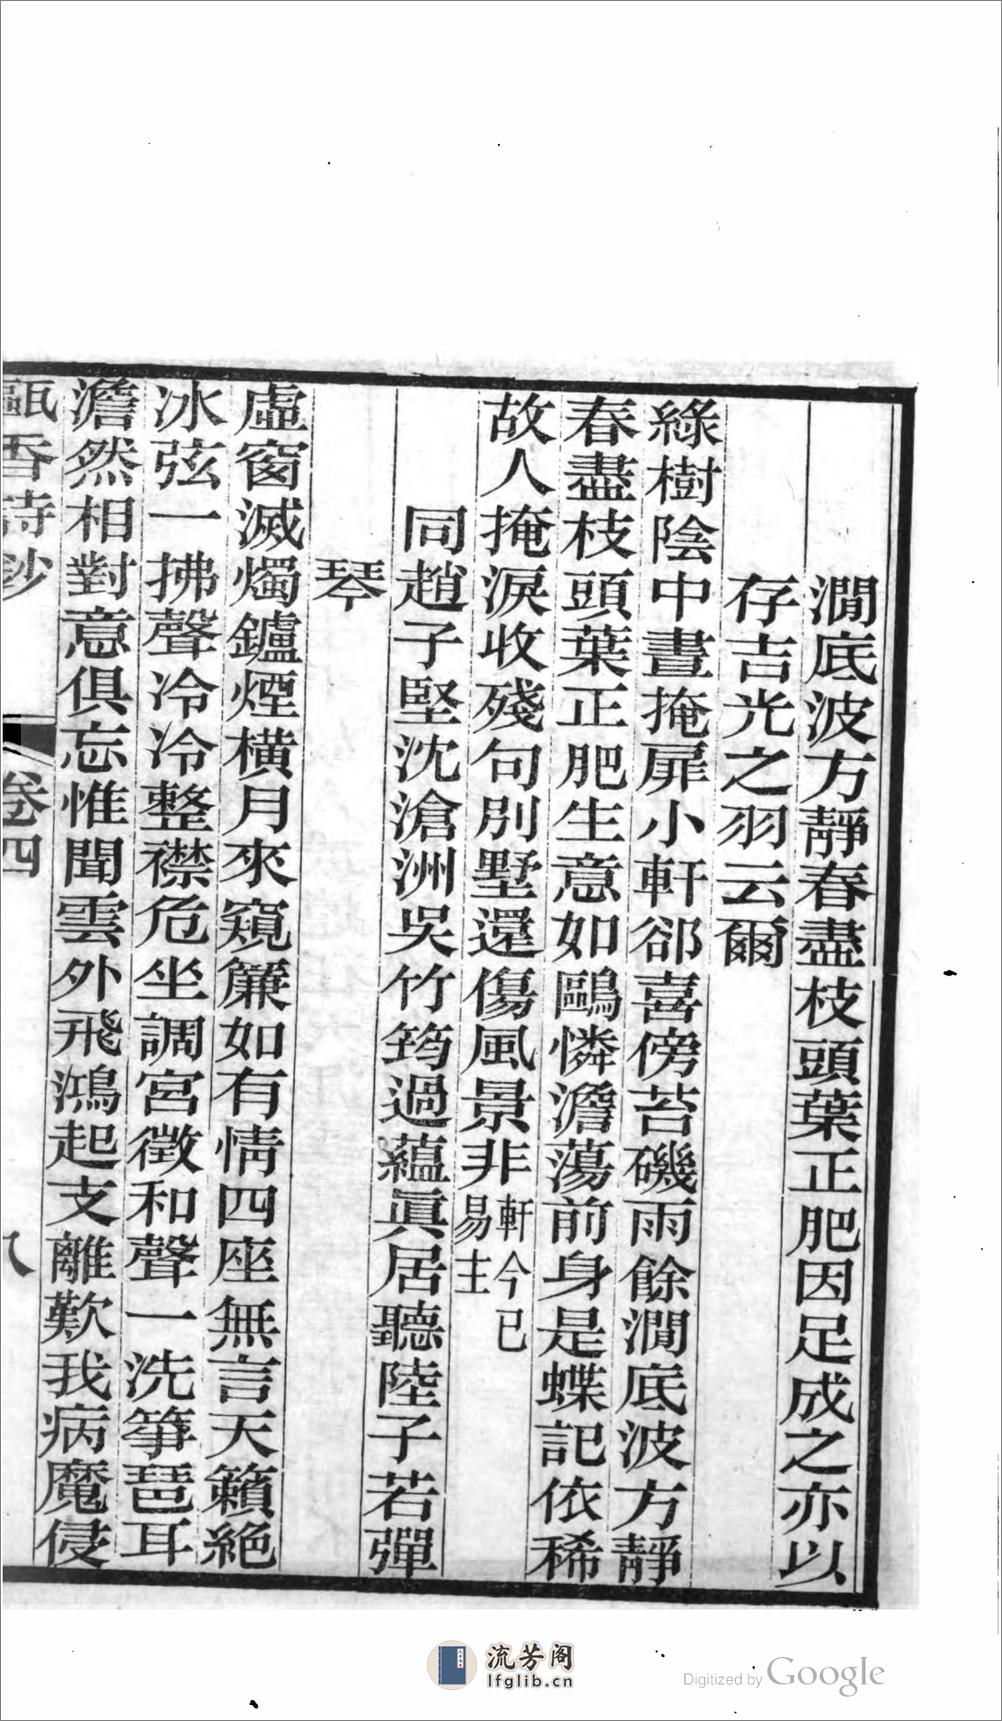 澗底波方靜春盡枝頭葉正肥因足成之亦以
存吉光之羽云爾
綠樹陰中晝掩扉小軒郤喜傍苔磯雨餘澗底波方靜
春盡枝頭葉正肥生意如鷗憐澹蕩前身是蝶記依稀
故人掩淚收殘句別墅還傷風景非軒今已易主
同趙子堅沈滄洲吳竹筠過蘊眞居聽陸子若彈
琴
虛窗滅燭鑪煙橫月來窺簾如有情四座無言天籟絕
冰弦一拂聲冷冷整襟危坐調宮徵和聲一洗箏琶耳
澹然相對意俱忘惟聞雲外飛鴻起支離歎我病魔侵
甌香詩鈔 卷四 八
流芳阁
lfglib.cn
Digitized by Google